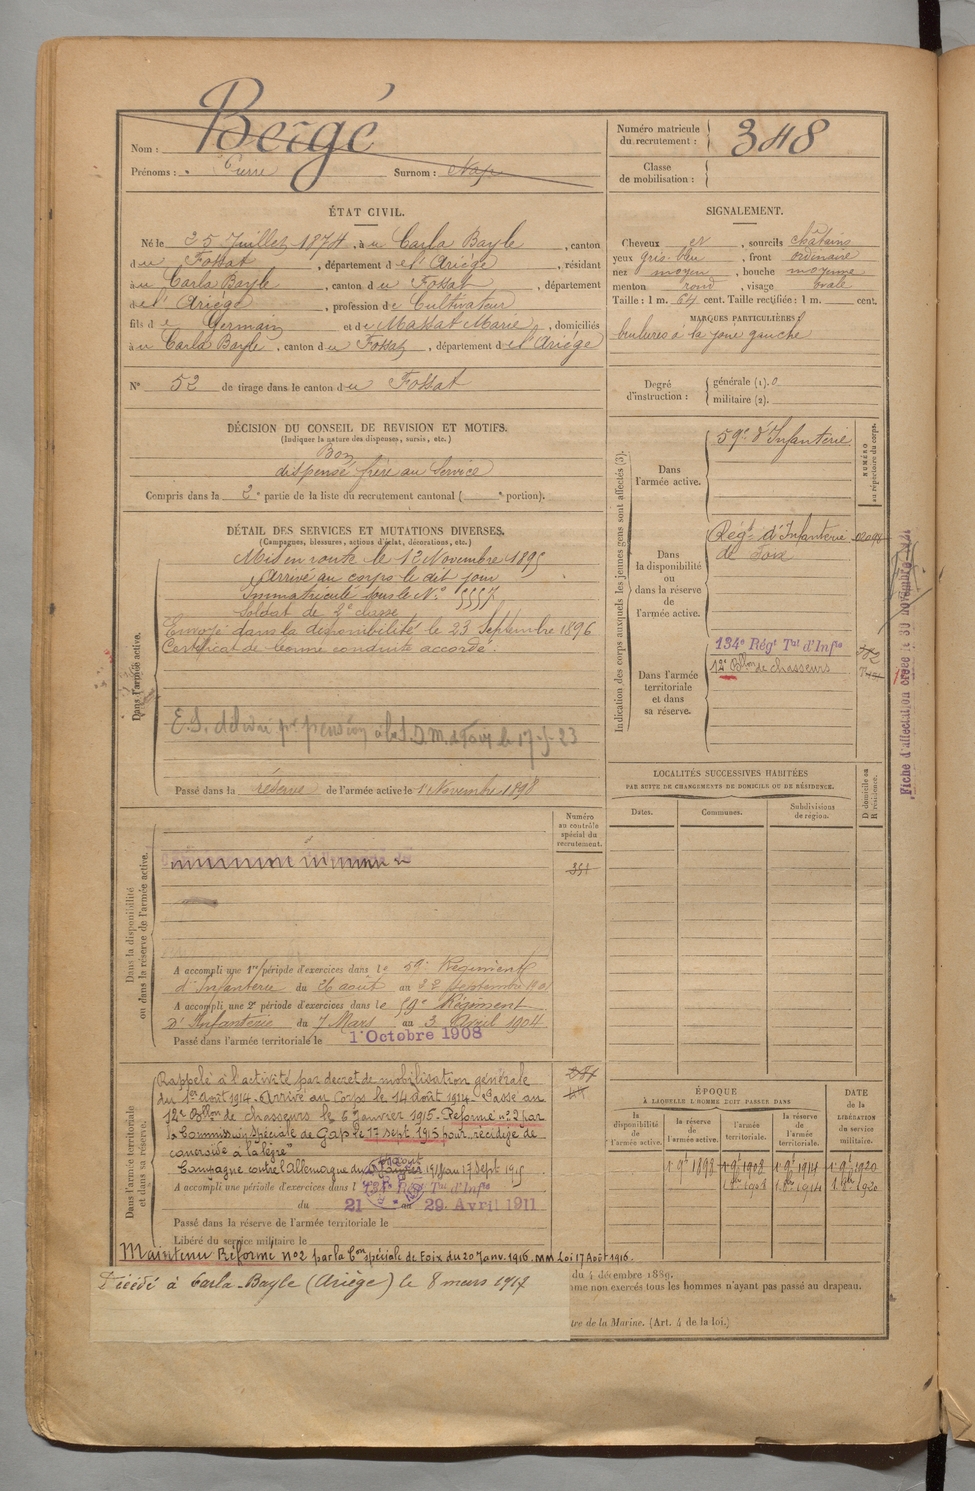 Nom : Bergé
Prénoms : Pierre Surnom :
ÉTAT CIVIL.
Né le 25 Juillet 1874, à u Carla Bayle, canton
du Fossat, département de l'Ariège, résidant
à u Carla Bayle, canton du Fossat, département
de l'Ariège, profession de Cultivateur
fils de Germain et de Massat Marie, domiciliés
à u Carla Bayle, canton du Fossat, département de l'Ariège
N° 52 de tirage dans le canton du Fossat
DÉCISION DU CONSEIL DE REVISION ET MOTIFS.
(Indiquer la nature des dispenses, sursis, etc.)
Bon
dispensé frère au Service
Compris dans la 2e partie de la liste du recrutement cantonal ( e portion).
DÉTAIL DES SERVICES ET MUTATIONS DIVERSES.
(Campagnes, blessures, actions d'éclat, décorations, etc.)
Dans l'armée active.
Mis en route le 12 Novembre 1895
Arrivé au corps le dit jour
Immatriculé sous le N°
Soldat de 2e classe
Envoyé dans la disponibilité le 23 Septembre 1896
Certificat de bonne conduite accordé.
Passé dans la réserve de l'armée active le 1 Novembre 1898
Dans la disponibilité
ou dans la réserve de l'armée active.
Numéro
au contrôle
spécial du
recrutement.
351
A accompli une 1re période d'exercices dans le 59e Régiment
d'Infanterie du 26 août au 22 Septembre
A accompli une 2e période d'exercices dans le 59e Régiment
d'Infanterie du 7 Mars au 3 Avril 1904
Passé dans l'armée territoriale le 1 Octobre 1908
Dans l'armée territoriale
et dans sa réserve.
Rappelé à l'activité par decret de mobilisation générale
du 1er août 1914. Arrivé au Corps le 14 août 1914. Passé au
12e Bllon de chasseurs le 6 janvier 1915. Réformé n° 2 par
la Commission Spéciale de Gap le 17 sept 1915 pour récidive de
cancroïde à la lèvre
Campagne contre l'Allemagne du 1915 au 17 Sept 1915
A accompli une période d'exercices dans l 134e Rég Tal d'Infie
du 21 au 29. Avril 1911
Passé dans la réserve de l'armée territoriale le
Libéré du service militaire le
Maintenu Réformé n°2 par la Con spéciale de Foix du 20 Janv. 1916. MM Loi 17 Août 1915.
Décédé à Carla-Bayle (Ariège) le 8 mars 1917
Numéro matricule
du recrutement : 348
Classe
de mobilisation :
SIGNALEMENT.
Cheveux et, sourcils châtains
yeux gris-bleu, front ordinaire
nez moyen, bouche moyenne
menton rond, visage ovale
Taille : 1 m. 64 cent. Taille rectifiée : 1 m. cent.
MARQUES PARTICULIÈRES :
brulures à la joue gauche
Degré
d'instruction :
générale (1). 0
militaire (2).
Indication des corps auxquels les jeunes gens sont affectés (3).
NUMÉRO
au répertoire du corps.
Dans
l'armée active.
59e d'Infanterie
Dans
la disponibilité
ou
dans la réserve
de
l'armée active.
Régt d'Infanterie
de Foix
Dans l'armée
territoriale
et dans
sa réserve.
134e Régt Tal d'Infie
12e Bllon de chasseurs
Fiche d'affectation créée le 30 novembre
LOCALITÉS SUCCESSIVES HABITÉES
PAR SUITE DE CHANGEMENTS DE DOMICILE OU DE RÉSIDENCE.
D domicile ou
R résidence.
Dates. Communes. Subdivisions
de région.
ÉPOQUE
À LAQUELLE L'HOMME DOIT PASSER DANS
DATE
de la
LIBÉRATION
du service
militaire.
la
disponibilité
de
l'armée active.
la réserve
de
l'armée active.
l'armée
territoriale.
la réserve
de
l'armée
territoriale.
1 9e 1898 1 9e 1908 1 9e 1914 1 9e 1920
du 4 décembre 1889.
mme non exercés tous les hommes n'ayant pas passé au drapeau.
tre de la Marine. (Art. 4 de la loi.)